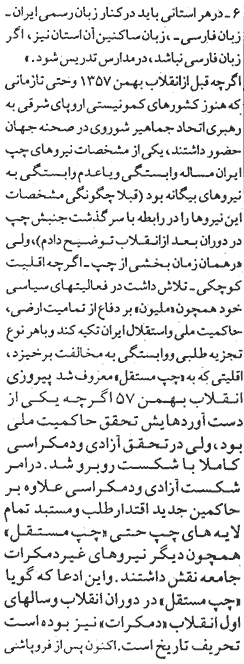 ۶ ـ درهر استانی باید درکنار زبان رسمی ایران ـ
زبان فارسی ـ، زبان ساکنین آن استان نیز، اگر
زبان فارسی نباشد، درمدارس تدریس شود. »
اگرچه قبل ازانقلاب بهمن ۱۳۵۷ وحتی تازمانی
که هنوز کشورهای کمونیستی اروپای شرقی به
رهبری اتحاد جماهیر شوروی در صحنه جهان
حضور داشتند، یکی از مشخصات نیروهای چپ
ایران مساله وابستگی ویاعدم وابستگی به
نیروهای بیگانه بود (قبلا چگونگی مشخصات
این نیروها را در رابطه با سرگذشت جنبش چپ
در دوران بعد ازانقلاب توضیح دادم)، ولی
درهمان زمان بخشی از چپ ـ اگرچه اقلیت
کوچکی ـ تلاش داشت در فعالیتهای سیاسی
خود همچون «ملیون» بر دفاع از تمامیت ارضی،
حاکمیت ملی واستقلال ایران تکیه کند وباهر نوع
تجزیه طلبی ووابستگی به مخالفت برخیزد،
اقلیتی که به «چپ مستقل» معروف شد پیروزی
انقلاب بهمن ۵۷ اگرچه یکی از
دست آوردهایش تحقق حاکمیت ملی
بود، ولی درتحقق آزادی ودمکراسی
کاملا با شکست روبرو شد. درامر
شکست آزادی ودمکراسی علاوه بر
حاکمین جدید اقتدارطلب ومستبد تمام
لایه های چپ حتی «چپ مستقل»
همچون دیگر نیروهای غیردمکرات
جامعه نقش داشتند. واین ادعا که گویا
«چپ مستقل» در دوران انقلاب وسالهای
اول انقلاب «دمکرات» نیز بوده است
تحریف تاریخ است. اکنون پس از فروپاشی